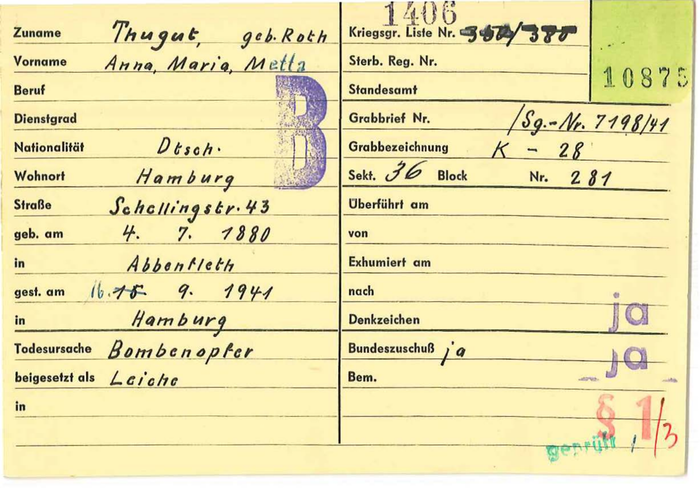 1406
10875
Zuname Thugut, geb. Roth
Vorname Anna, Maria, Metta
Beruf
Dienstgrad
Nationalität Dtsch.
Wohnort Hamburg
Straße Schellingstr. 43
geb. am 4. 7. 1880
in Abbenfleth
gest. am 16. 15 9. 1941
in Hamburg
Todesursache Bombenopfer
beigesetzt als Leiche
in
B
Kriegsgr. Liste Nr. /380
Sterb. Reg. Nr.
Standesamt
Grabbrief Nr. /Sg.-Nr. 7198/41
Grabbezeichnung K - 28
Sekt. 36 Block Nr. 281
Überführt am
von
Exhumiert am
nach
Denkzeichen ja
Bundeszuschuß ja ja
Bem.
§ 1/3
geprüft